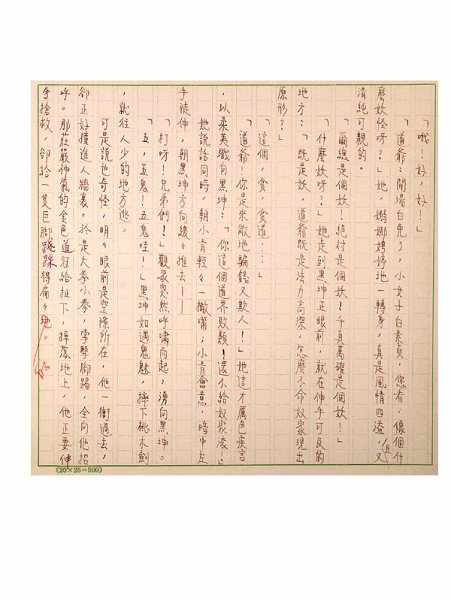 「哦!好,好!」
「道爺:開場白免了,小女子白素貞,您看:像個什
麼妖怪呀?」她,嫋嫋娉娉地一轉身,真是風情四溢,又
清純可親的。
「總是個妖!絕對是個妖!千真萬確是個妖!」
「什麼妖呀?」她走到黑坤正眼前,就在伸手可及的
地方:「既是妖,道爺既是法力高深,怎麼不命奴家現出
原形?」
「這個,貪,貪道……」
「道爺,你是來敝地騙錢又欺人!」她這才厲色疾言
,以柔荑戳向黑坤:「你這個道界敗類!還不給奴家滾!」
她說話同時,朝小青輕々一撇嘴;小青會意,暗中左
手徒伸,朝黑坤方向緩々推去——
「打呀!兄弟們!」觀眾突然呼嘯而起,湧向黑坤。
「五,五鬼!五鬼哇!」黑坤如遇鬼魅,摔下桃木劍
,就往人少的地方逃。
可是也奇怪,明々眼前是空隙所在,他一衝過去,
卻正好撞進人牆裏。於是大拳小拳,掌擊腳踢,全向他招
呼。那莊嚴神氣的金色道冠給扯下,摔落地上,他正要伸
手搶救,卻給一隻巨腳踐踩得扁々
(20×25=500)